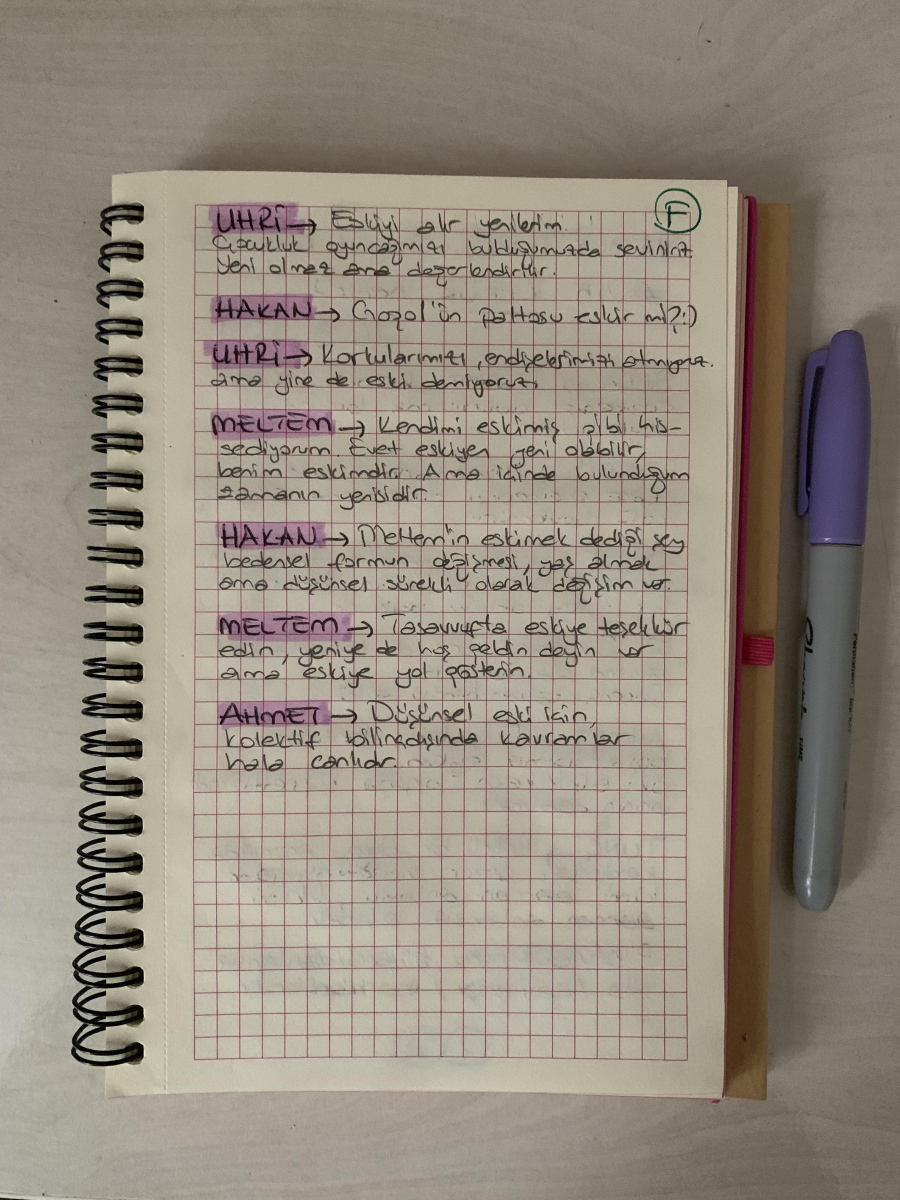 F
UHRİ → Eskiyi alır yenilerim.
Çocukluk oyuncağımızı bulduğumuzda seviniriz
Yeni olmaz ama değerlendirilir.
HAKAN → Gogol'ün paltosu eskir mi? :)
UHRİ → Korkularımızı, endişelerimizi atmıyoruz.
ama yine de eski demiyoruz.
MELTEM → Kendimi eskimiş gibi his-
sediyorum. Evet eskiyen yeni olabilir,
benim eskimdir. Ama içinde bulunduğum
zamanın yenisidir.
HAKAN → Meltem'in eskimek dediği şey
bedensel formun değişmesi, yaş almak
ama düşünsel sürekli olarak değişim var.
MELTEM → Tasavvufta eskiye teşekkür
edin, yeniye de hoş geldin deyin var
ama eskiye yol gösterin.
AHMET → Düşünsel eski için,
kolektif bilinçdışında kavramlar
hala canlıdır.